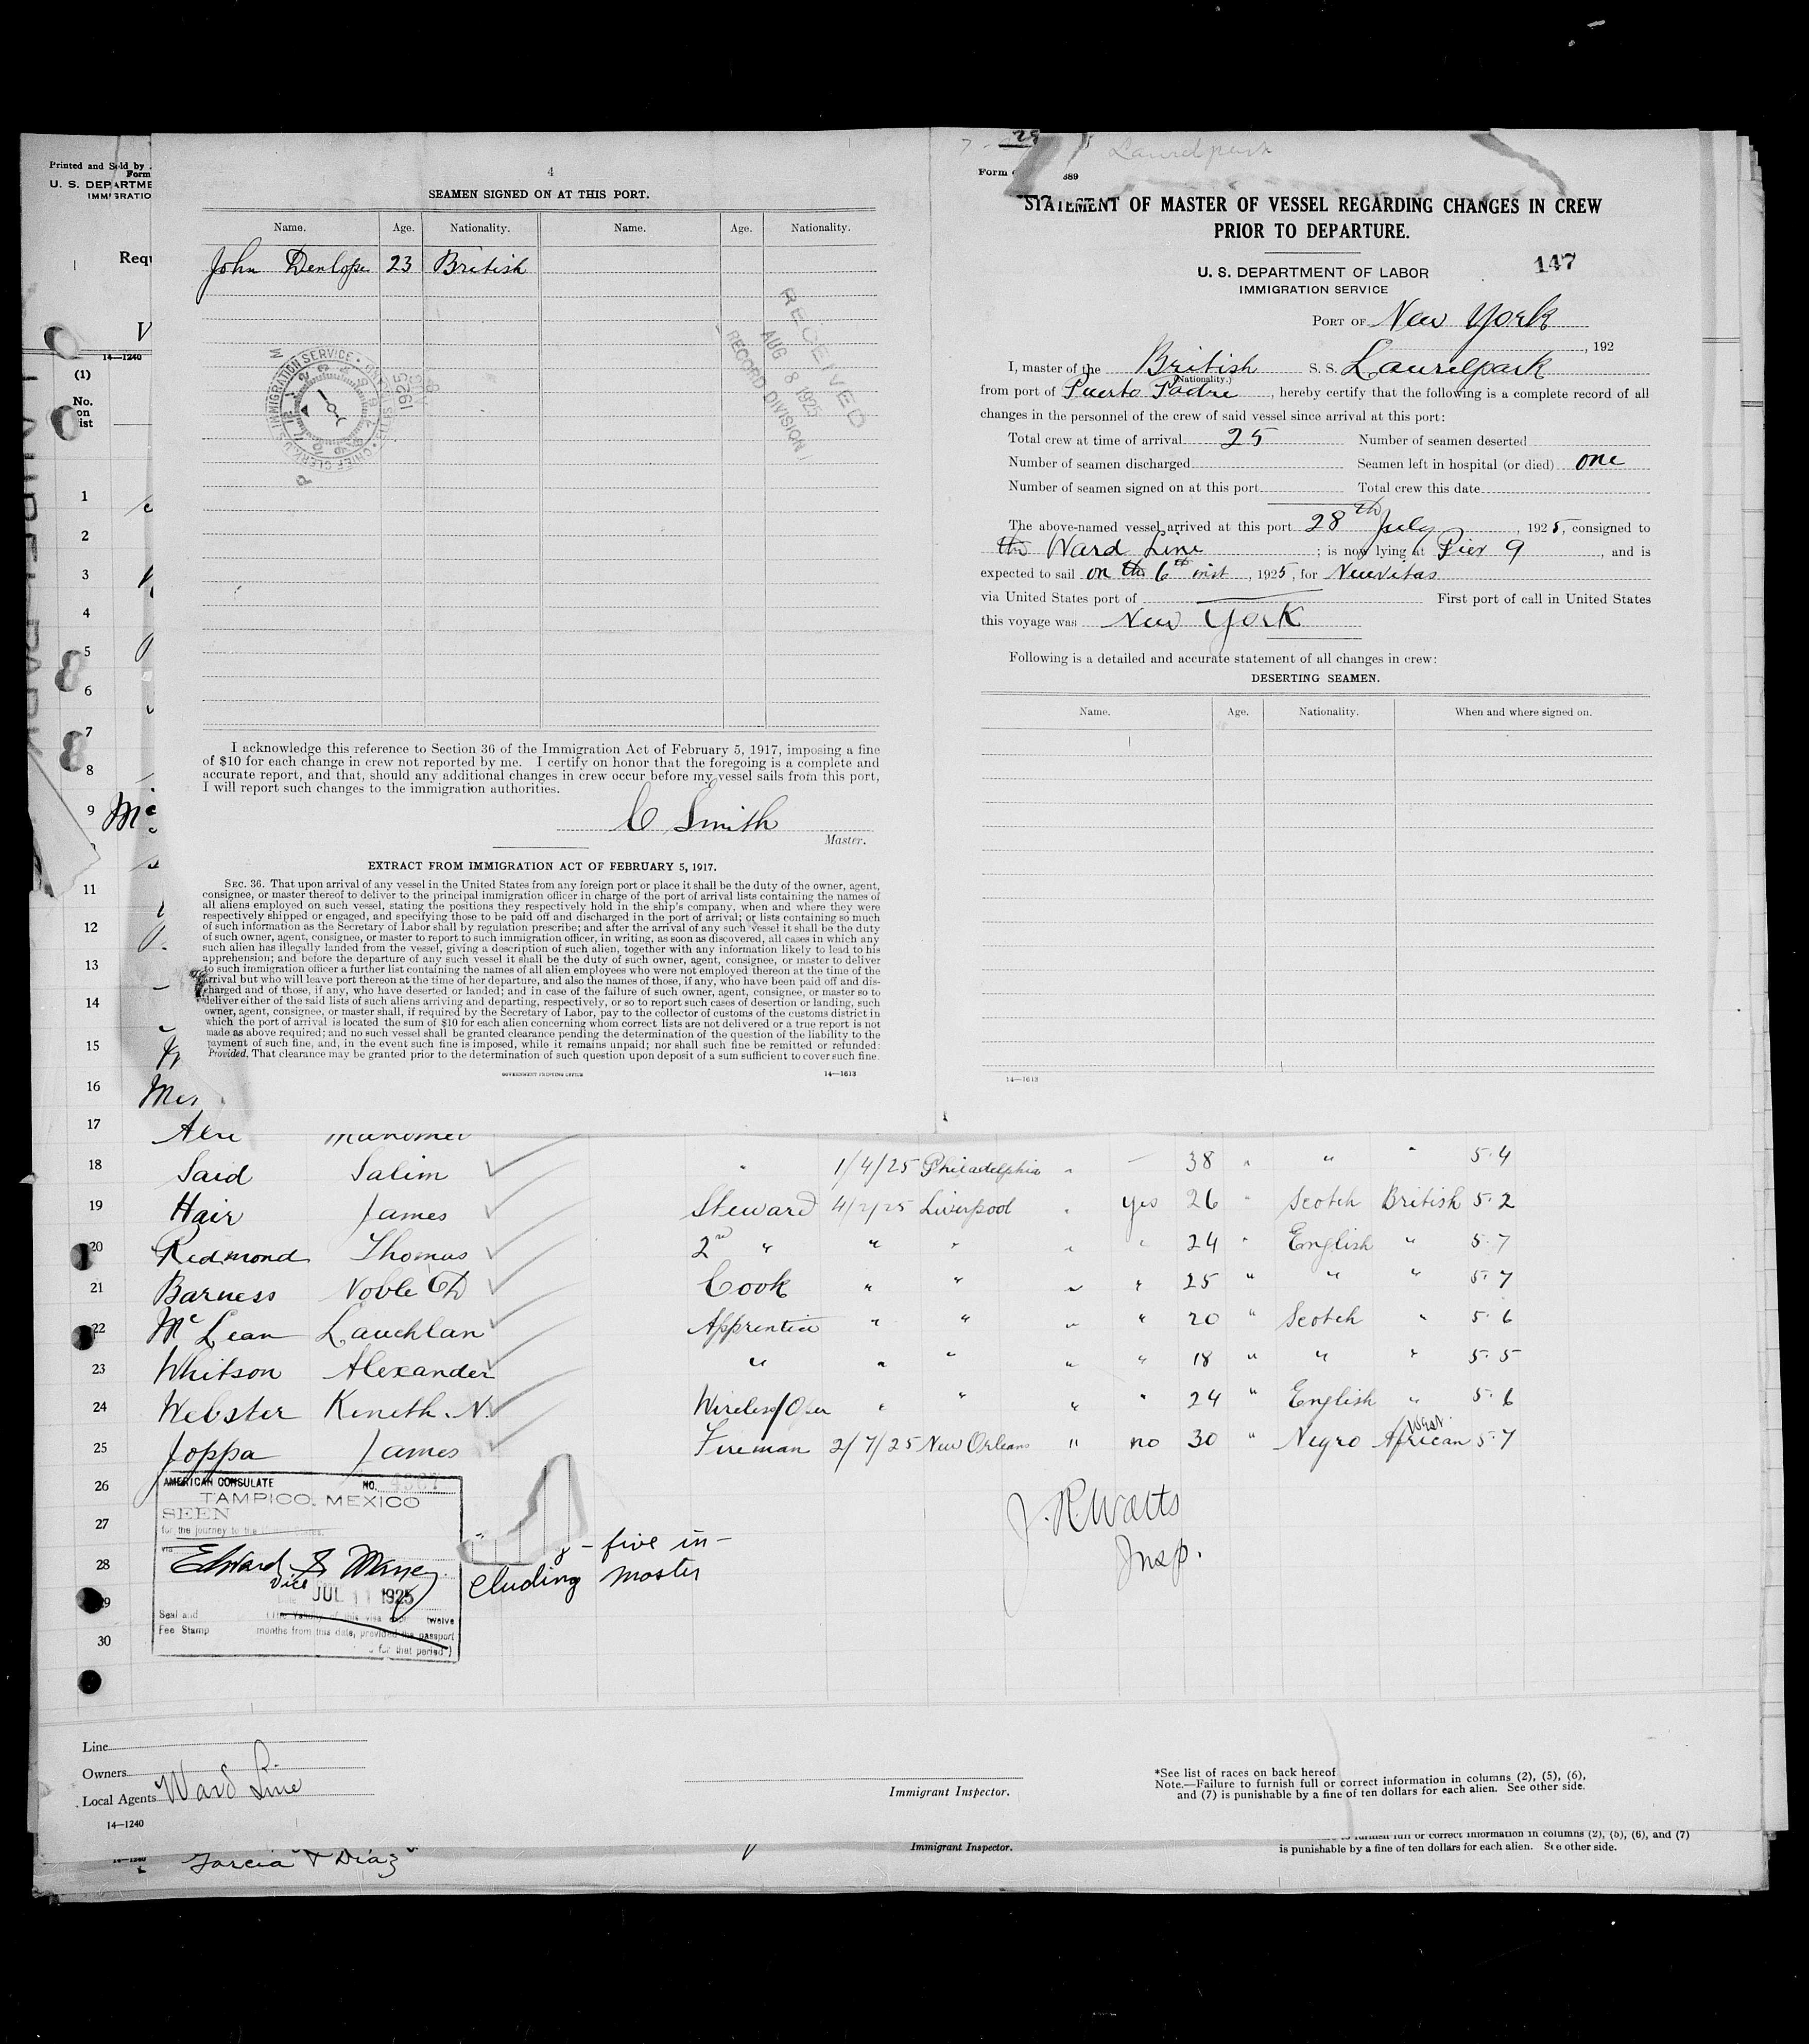 Printed and Sold by
Form
U. S. DEPARTME
IMMIGRATIO
Requ
14—1240
(1)
No.
on
ist
4
SEAMEN SIGNED ON AT THIS PORT.
Name. Age. Nationality. Name. Age. Nationality.
John Denlope 23 British
RECEIVED
AUG 8 1925
RECORD DIVISION
I acknowledge this reference to Section 36 of the Immigration Act of February 5, 1917, imposing a fine
of $10 for each change in crew not reported by me. I certify on honor that the foregoing is a complete and
accurate report, and that, should any additional changes in crew occur before my vessel sails from this port,
I will report such changes to the immigration authorities.
C Smith
Master.
EXTRACT FROM IMMIGRATION ACT OF FEBRUARY 5, 1917.
SEC. 36. That upon arrival of any vessel in the United States from any foreign port or place it shall be the duty of the owner, agent,
consignee, or master thereof to deliver to the principal immigration officer in charge of the port of arrival lists containing the names of
all aliens employed on such vessel, stating the positions they respectively hold in the ship's company, when and where they were
respectively shipped or engaged, and specifying those to be paid off and discharged in the port of arrival; or lists containing so much
of such information as the Secretary of Labor shall by regulation prescribe; and after the arrival of any such vessel it shall be the duty
of such owner, agent, consignee, or master to report to such immigration officer, in writing, as soon as discovered, all cases in which any
such alien has illegally landed from the vessel, giving a description of such alien, together with any information likely to lead to his
apprehension; and before the departure of any such vessel it shall be the duty of such owner, agent, consignee, or master to deliver
to such immigration officer a further list containing the names of all alien employees who were not employed thereon at the time of the
arrival but who will leave port thereon at the time of her departure, and also the names of those, if any, who have been paid off and dis-
charged and of those, if any, who have deserted or landed; and in case of the failure of such owner, agent, consignee, or master so to
deliver either of the said lists of such aliens arriving and departing, respectively, or so to report such cases of desertion or landing, such
owner, agent, consignee, or master shall, if required by the Secretary of Labor, pay to the collector of customs of the customs district in
which the port of arrival is located the sum of $10 for each alien concerning whom correct lists are not delivered or a true report is not
made as above required; and no such vessel shall be granted clearance pending the determination of the question of the liability to the
payment of such fine, and, in the event such fine is imposed, while it remains unpaid; nor shall such fine be remitted or refunded:
Provided, That clearance may be granted prior to the determination of such question upon deposit of a sum sufficient to cover such fine.
GOVERNMENT PRINTING OFFICE 14—1613
Laurelpark
Form 689
STATEMENT OF MASTER OF VESSEL REGARDING CHANGES IN CREW
PRIOR TO DEPARTURE.
147
U. S. DEPARTMENT OF LABOR
IMMIGRATION SERVICE
PORT OF New York
, 192
I, master of the British S. S. Laurelpark
(Nationality.)
from port of Puerto Padre, hereby certify that the following is a complete record of all
changes in the personnel of the crew of said vessel since arrival at this port:
Total crew at time of arrival 25 Number of seamen deserted
Number of seamen discharged Seamen left in hospital (or died) one
Number of seamen signed on at this port Total crew this date
The above-named vessel arrived at this port 28th July, 1925, consigned to
the Ward Line; is now lying at Pier 9, and is
expected to sail on the 6th inst, 1925, for Nuevitas
via United States port of First port of call in United States
this voyage was New York
Following is a detailed and accurate statement of all changes in crew:
DESERTING SEAMEN.
Name. Age. Nationality. When and where signed on.
14—1613
1
2
3
4
5
6
7
8
9
11
12
13
14
15
16
17
18 Said Salim " 1/4/25 Philadelphia " — 38 " " " 5.4
19 Hair James Steward 4/2/25 Liverpool " yes 26 " Scotch British 5.2
20 Redmond Thomas 2nd " " " " " 24 " English " 5.7
21 Barness Noble Cook " " " " 25 " " " 5.7
22 McLean Lauchlan Apprentice " " " " 20 " Scotch " 5.6
23 Whitson Alexander " " " " " 18 " " " 5.5
24 Webster Keneth. N. Wireless/Oper " " " " 24 " English " 5.6
25 Joppa James Fireman 2/7/25 New Orleans " no 30 " Negro West African 5.7
26
27
28
30
AMERICAN CONSULATE NO.
TAMPICO, MEXICO
SEEN
for the journey to the United States.
via
Vice
JUL 11 1925
Seal and
Fee Stamp
twelve
months from this date, provided the passport
for that period)
- five in-
cluding master
J. R. Watts
Insp.
Line
Owners
Local Agents Ward Line
14—1240
Immigrant Inspector.
*See list of races on back hereof
Note.—Failure to furnish full or correct information in columns (2), (5), (6),
and (7) is punishable by a fine of ten dollars for each alien. See other side.
Garcia & Diaz
Immigrant Inspector.
to furnish full or correct information in columns (2), (5), (6), and (7)
is punishable by a fine of ten dollars for each alien. See other side.